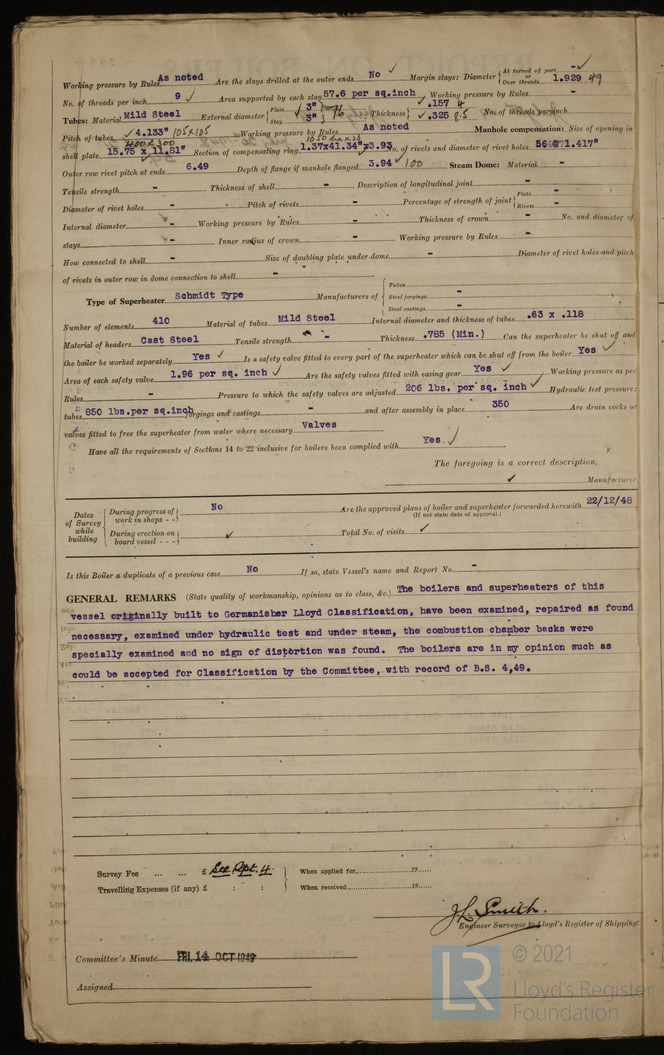 Working pressure by Rules As noted Are the stays drilled at the outer ends No Margin stays: Diameter { At turned off part, - or Over threads 1.929 49
No. of threads per inch 9 Area supported by each stay 57.6 per sq.inch Working pressure by Rules -
Tubes: Material Mild Steel External diameter { Plain 3" Stay 3" } 76 Thickness { .157 4 .325 8.5 No. of threads per inch
Pitch of tubes 4.133" 105x105 Working pressure by Rules As noted Manhole compensation: Size of opening in
400 x 300
shell plate 15.75 x 11.81" Section of compensating ring 1.37x41.34"x3.93 No. of rivets and diameter of rivet holes 56 1.417"
Outer row rivet pitch at ends 6.49 Depth of flange if manhole flanged 3.94 100 Steam Dome: Material -
Tensile strength - Thickness of shell - Description of longitudinal joint -
Diameter of rivet holes - Pitch of rivets - Percentage of strength of joint { Plate - Rivets -
Internal diameter - Working pressure by Rules - Thickness of crown - No. and diameter of
stays - Inner radius of crown - Working pressure by Rules -
How connected to shell - Size of doubling plate under dome - Diameter of rivet holes and pitch
of rivets in outer row in dome connection to shell -
Type of Superheater Schmidt Type Manufacturers of { Tubes Steel forgings - Steel castings -
Number of elements 410 Material of tubes Mild Steel Internal diameter and thickness of tubes .63 x .118
Material of headers Cast Steel Tensile strength - Thickness .785 (Min.) Can the superheater be shut off and
the boiler be worked separately Yes Is a safety valve fitted to every part of the superheater which can be shut off from the boiler Yes
Area of each safety valve 1.96 per sq. inch Are the safety valves fitted with easing gear Yes Working pressure as per
Rules - Pressure to which the safety valves are adjusted 206 lbs. per sq. inch Hydraulic test pressure:
tubes 850 lbs.per sq.inch forgings and castings - and after assembly in place 350 Are drain cocks or
valves fitted to free the superheater from water where necessary Valves
Have all the requirements of Sections 14 to 22 inclusive for boilers been complied with Yes.
The foregoing is a correct description,
Manufacturer.
Dates of Survey while building { During progress of work in shops - - } No Are the approved plans of boiler and superheater forwarded herewith 22/12/48
(If not state date of approval.)
{ During erection on board vessel - - - } Total No. of visits
Is this Boiler a duplicate of a previous case No If so, state Vessel's name and Report No. -
GENERAL REMARKS (State quality of workmanship, opinions as to class, &c.) The boilers and superheaters of this
vessel originally built to Germanisher Lloyd Classification, have been examined, repaired as found
necessary, examined under hydraulic test and under steam, the combustion chamber backs were
specially examined and no sign of distortion was found. The boilers are in my opinion such as
could be accepted for Classification by the Committee, with record of B.S. 4,49.
Survey Fee ... ... £ See Rpt. 4. When applied for, 19
Travelling Expenses (if any) £ : : When received 19
J.L. Smith.
Engineer Surveyor to Lloyd's Register of Shipping.
Committee's Minute FRI. 14 OCT 1949
Assigned
LR © 2021
Lloyd's Register
Foundation